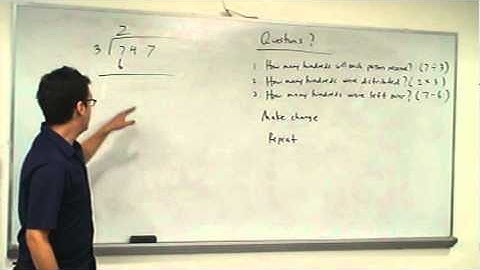 2
3 747
6
Questions?
1. How many hundreds will each person receive? (7 ÷ 3)
2. How many hundreds were distributed? (2 x 3)
3. How many hundreds were left over? (7 - 6)
Make change
Repeat